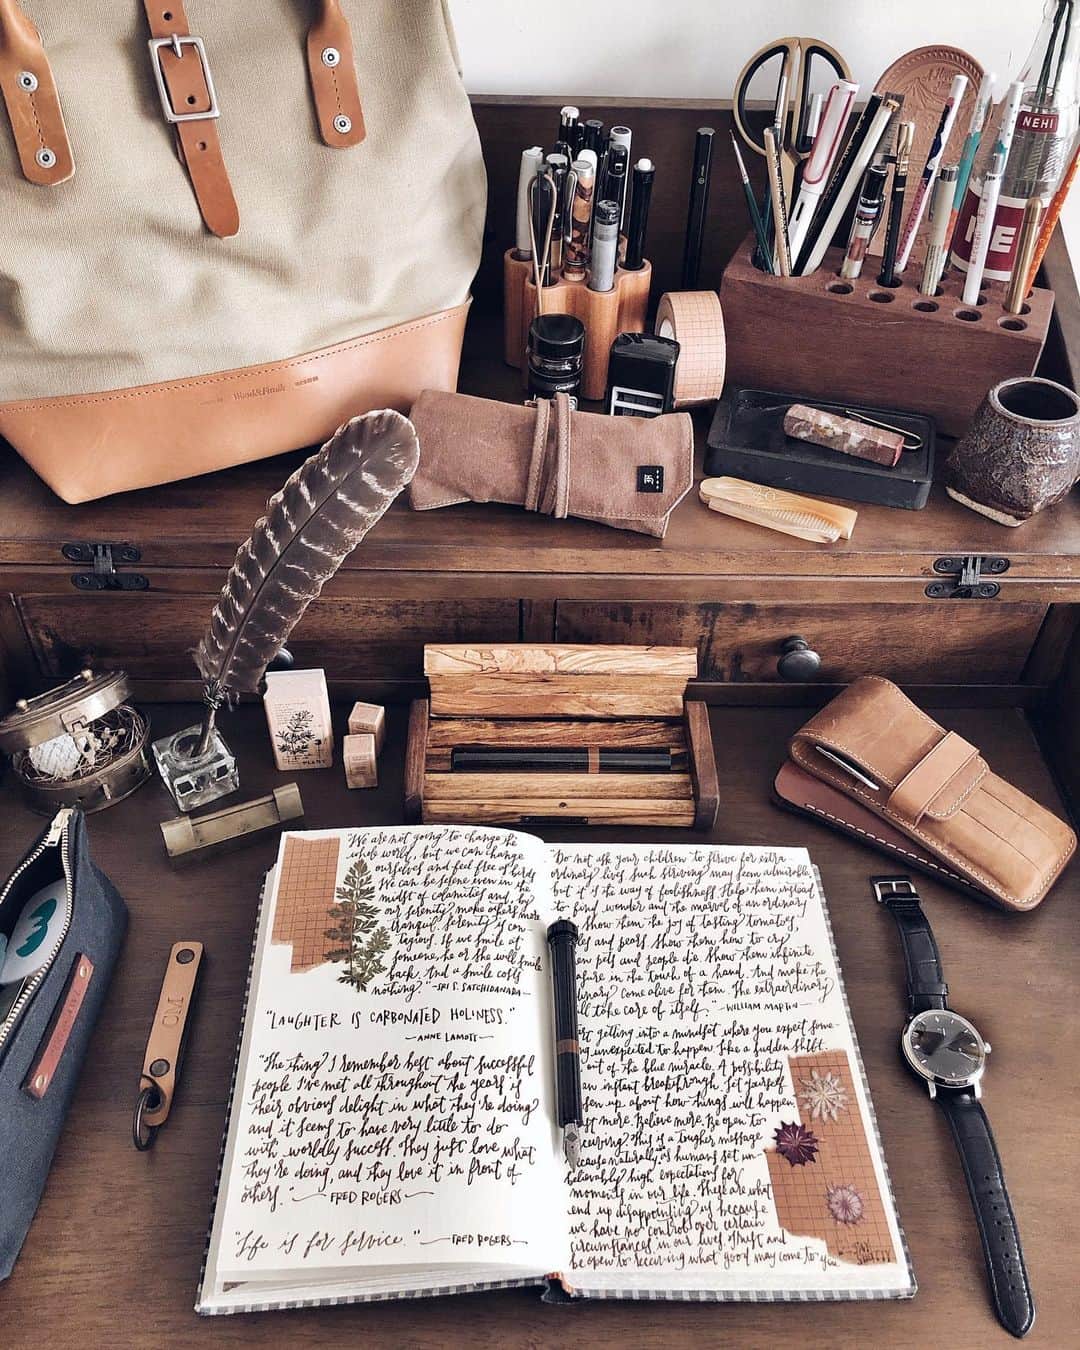 NEHI
NE
PLANT
"We are not going to change the
whole world, but we can change
ourselves and feel free as birds.
We can be serene even in the
midst of calamities and, by
our serenity make others more
tranquil. Serenity is con-
tagious. If we smile at
someone, he or she will smile
back. And a smile costs
nothing." -SRI S. SATCHIDANANDA-
"LAUGHTER IS CARBONATED HOLINESS."
-ANNE LAMOTT-
"The thing I remember best about successful
people I've met all throughout the years is
their obvious delight in what they're doing
and it seems to have very little to do
with worldly success. They just love what
they're doing, and they love it in front of
others." -FRED ROGERS-
"Life is for service." -FRED ROGERS-
"Do not ask your children to strive for extra-
ordinary lives. Such striving may seem admirable,
but it is the way of foolishness. Help them instead
to find wonder and the marvel of an ordinary
Show them the joy of tasting tomatoes,
and pears. Show them how to cry
pets and people die. Show them infinite
in the touch of a hand. And make the
come alive for them. The extraordinary
take care of itself." -WILLIAM MARTIN-
getting into a mindset where you expect some-
unexpected to happen like a sudden shift.
out of the blue miracle. A possibility
an instant breakthrough. Set yourself
up about how things will happen.
more. Believe more. Be open to
This is a tougher message
naturally as humans set un-
high expectations for
moments in our life. These are what
end up disappointing us because
we have no control over certain
circumstances in our lives. Shift and
be open to receiving what good may come to you.
OM